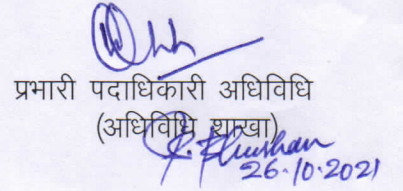 प्रभारी पदाधिकारी अधिविधि
(अधिविधि शाखा)
26.10.2021